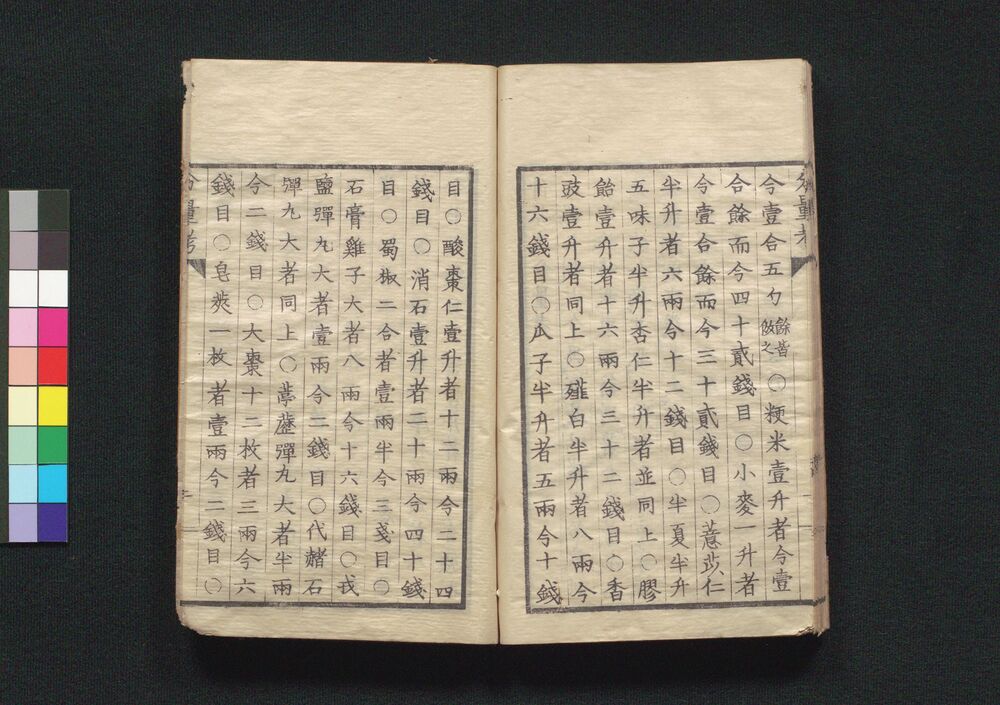 今壹合五勺餘皆倣之〇粳米壹升者今壹
合餘而今四十貳錢目〇小麥一升者
今壹合餘而今三十貳錢目〇薏苡仁
半升者六兩今十二錢目〇半夏半升
五味子半升杏仁半升者並同上〇膠
飴壹升者十六兩今三十二錢目〇香
豉壹升者同上〇薤白半升者八兩今
十六錢目〇瓜子半升者五兩今十錢
目〇酸棗仁壹升者十二兩今二十四
錢目〇消石壹升者二十兩今四十錢
目〇蜀椒二合者壹兩半今三錢目〇
石膏雞子大者八兩今十六錢目〇戎
鹽彈丸大者壹兩今二錢目〇代赭石
彈丸大者同上〇葶藶彈丸大者半兩
今二錢目〇大棗十二枚者三兩今六
錢目〇皂莢一枚者壹兩今二錢目〇
分量考